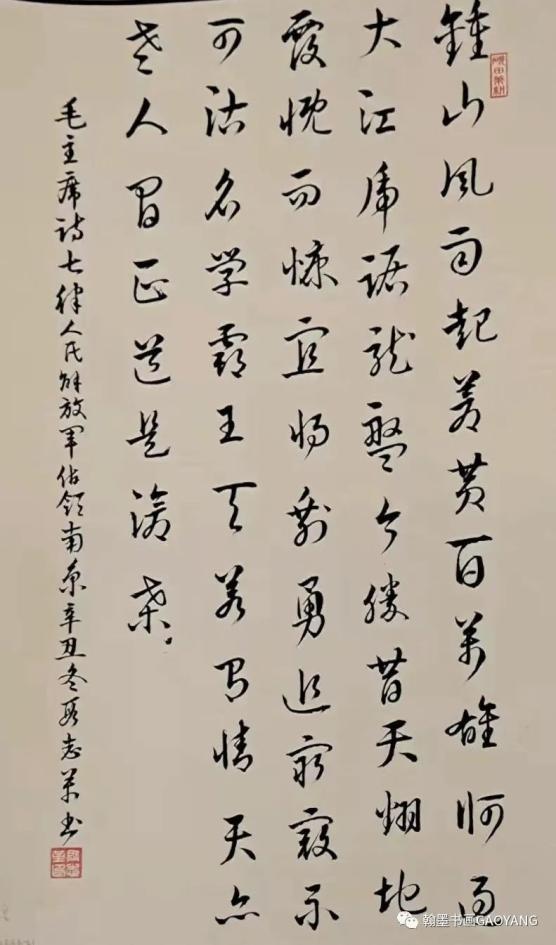 鍾山风雨起蒼黄百萬雄师过
大江虎踞龙盤今勝昔天翻地
覆慨而慷宜将剩勇追窮寇不
可沽名学霸王天若有情天亦
老人间正道是滄桑
毛主席诗七律人民解放军佔领南京辛丑冬段志书
翰墨书画GAOYANG